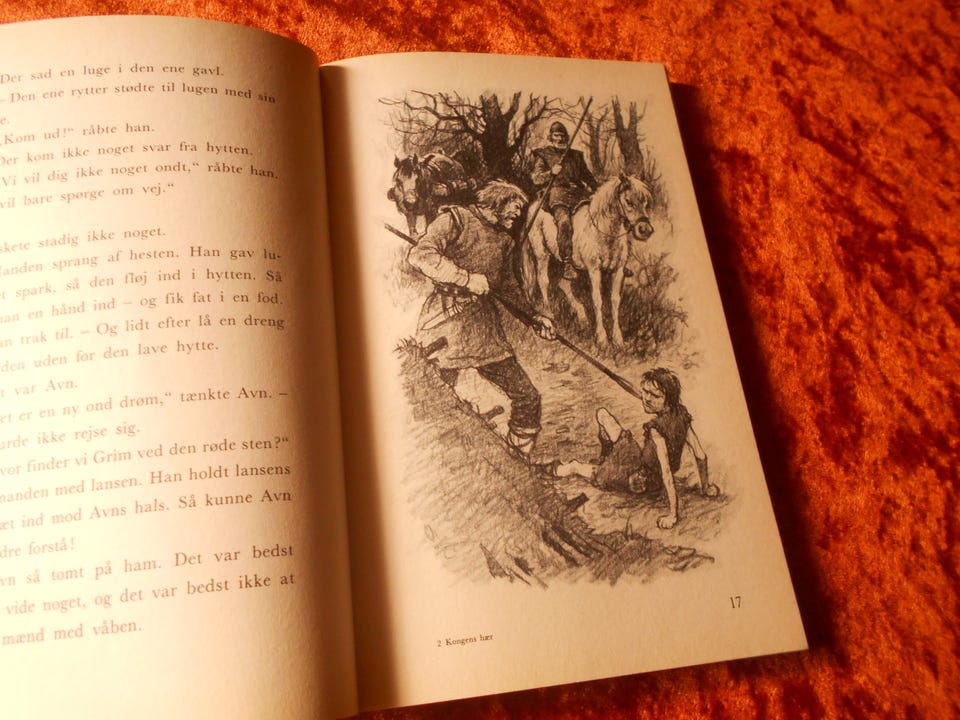 Der sad en luge i den ene gavl.
– Den ene rytter stødte til lugen med sin
e.
„Kom ud!“ råbte han.
Der kom ikke noget svar fra hytten.
Vi vil dig ikke noget ondt,“ råbte han.
vil bare spørge om vej.“
skete stadig ikke noget.
Manden sprang af hesten. Han gav lu-
et spark, så den fløj ind i hytten. Så
han en hånd ind – og fik fat i en fod.
an trak til. – Og lidt efter lå en dreng
rden uden for den lave hytte.
t var Avn.
et er en ny ond drøm,“ tænkte Avn. –
urde ikke rejse sig.
vor finder vi Grim ved den røde sten?“
manden med lansen. Han holdt lansens
æt ind mod Avns hals. Så kunne Avn
dre forstå!
vn så tomt på ham. Det var bedst
vide noget, og det var bedst ikke at
mænd med våben.
17
2 Kongens hær